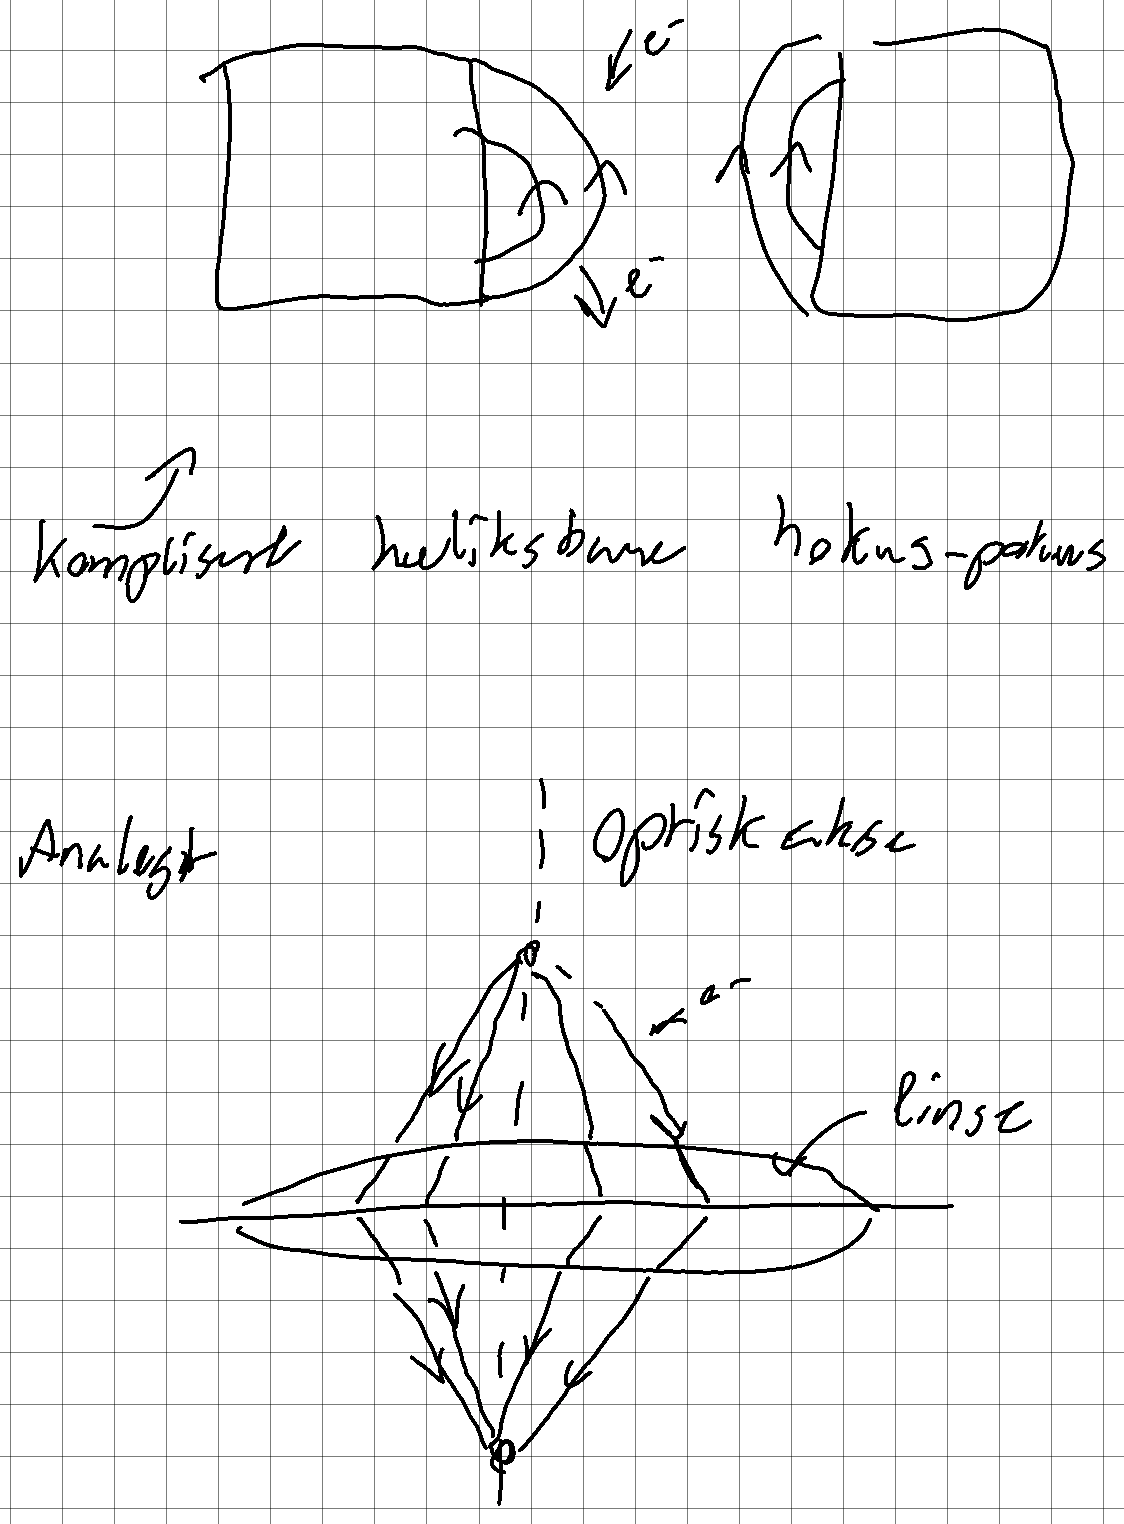 e⁻
e⁻
Komplisert heliksbane hokus-pokus
Analogt
Optisk akse
e⁻
linse